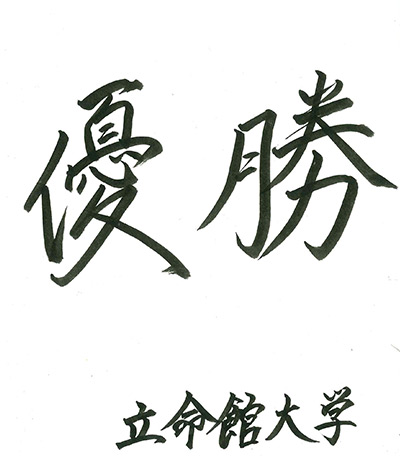 優勝
立命館大学